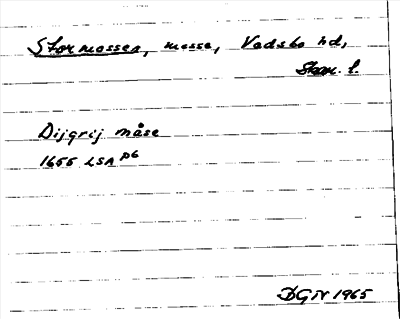 Stormossen, mosse, Vadsbo hd,
Skar. l.
Dijgrij måse
1655 LSA P6
DGN 1965